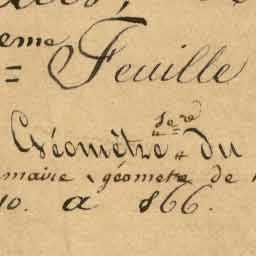 eme
= Feuille
Géomètre du
maire, géometre de
10. a 866.